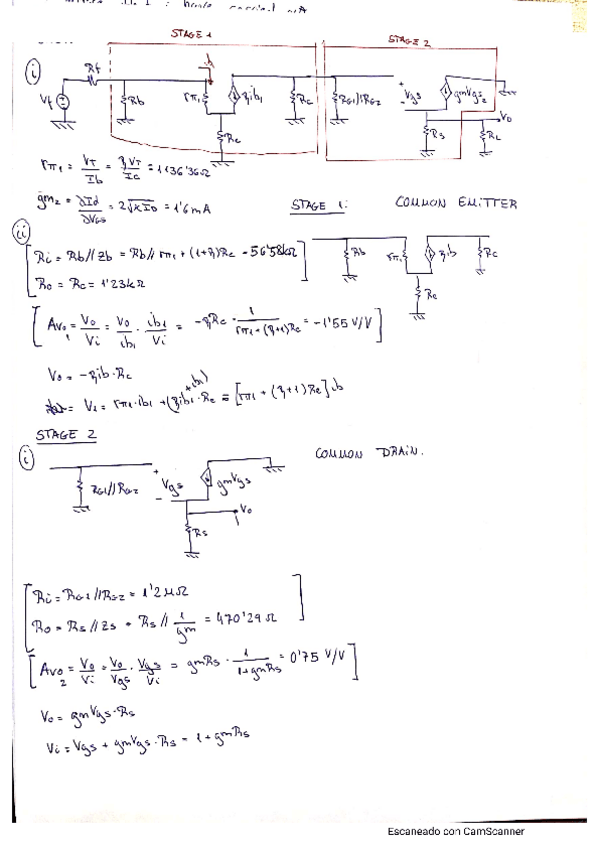 STAGE 1
STAGE 2
i
Rf
Vf
Rb
rπ1
βib1
Rc
Re
RG1//RG2
Vgs
gmVgs2
Rs
Vo
RL
rπ1 = VT/Ib = βVT/Ic = 1136'36Ω
gm2 = ∂Id/∂VGS = 2√KID = 1'6mA
STAGE 1: COMMON EMITTER
ii
Ri = Rb//Zb = Rb//rπ1 + (1+β)Re = 56'58kΩ
Ro = Rc = 1'23kΩ
Rb
rπ1
βib
Rc
Re
Avo1 = Vo/Vi = Vo/ib1 · ib1/Vi = -βRc · 1/(rπ1+(β+1)Re) = -1'55 V/V
Vo = -βib·Rc
= V1 = rπ1·ib1 + (βib1+ib1)·Re = [rπ1 + (β+1)Re] ib
STAGE 2
i
COMMON DRAIN.
RG1//RG2
Vgs
gmVgs
Vo
Rs
Ri = RG1//RG2 = 1'2MΩ
Ro = Rs//Zs = Rs//1/gm = 470'29Ω
Avo2 = Vo/Vi = Vo/Vgs · Vgs/Vi = gmRs · 1/(1+gmRs) = 0'75 V/V
Vo = gmVgs·Rs
Vi = Vgs + gmVgs·Rs = 1+gmRs
Escaneado con CamScanner